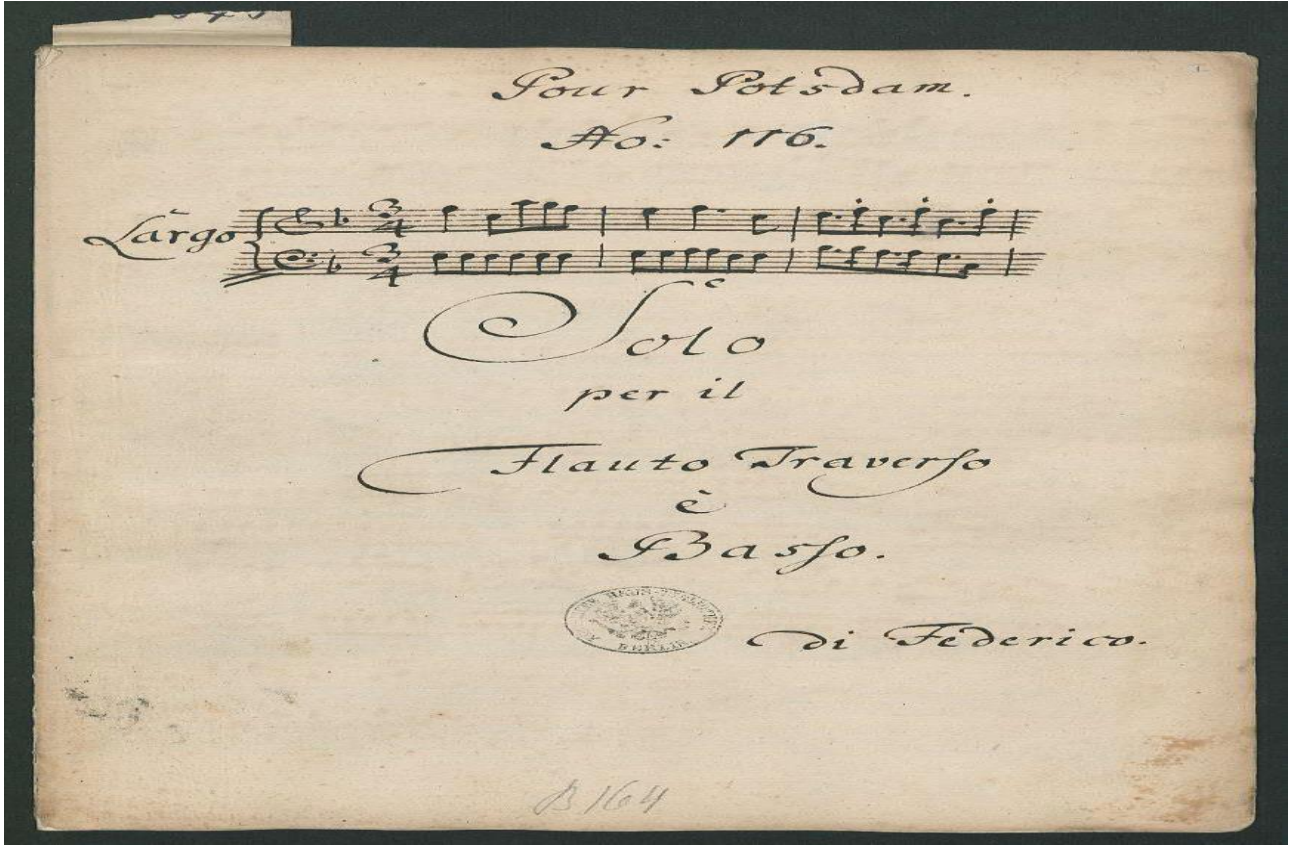 Pour Potsdam.
No: 116.
Largo
3/4
3/4
Solo
per il
Flauto Traverso
è
Basso.
BERLIN
di Federico.
B 164